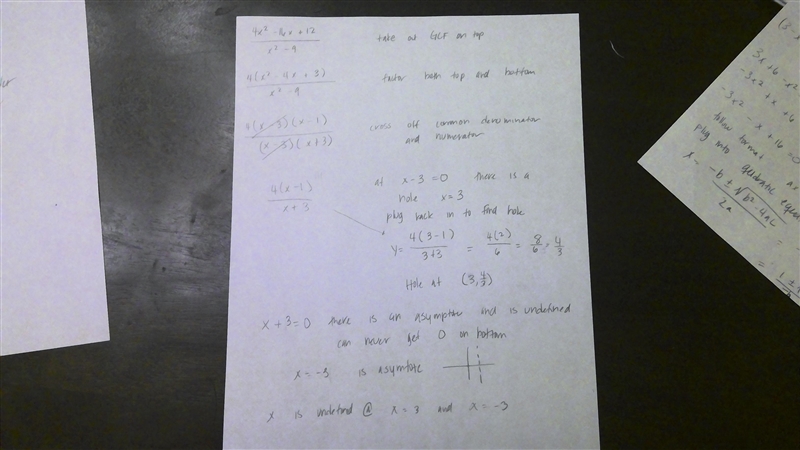 4x² - 16x + 12 / x² - 9 take out GCF on top
4(x² - 4x + 3) / x² - 9 factor both top and bottom
4(x - 3)(x - 1) / (x - 3)(x + 3) cross off common denominator
and numerator
4(x - 1) / x + 3 at x - 3 = 0 there is a
hole x = 3
plug back in to find hole
Y = 4(3 - 1) / 3 + 3 = 4(2) / 6 = 8/6 = 4/3
Hole at (3, 4/3)
x + 3 = 0 there is an asymptote and is undefined
can never get 0 on bottom
x = -3 is asymtote
x is undefined @ x = 3 and x = -3
(3
3x + 6 - x²
-3x² + x + 6
-3x² - x + 16 = 0
follow format ax
plug into quadratic equa
x = -b ± √b² - 4ac / 2a =
= 1 ±